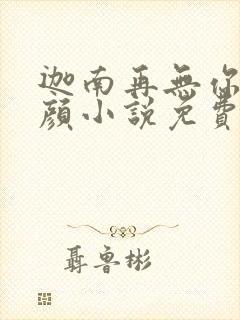 迦南再無你
顏小說免費
聶魯彬